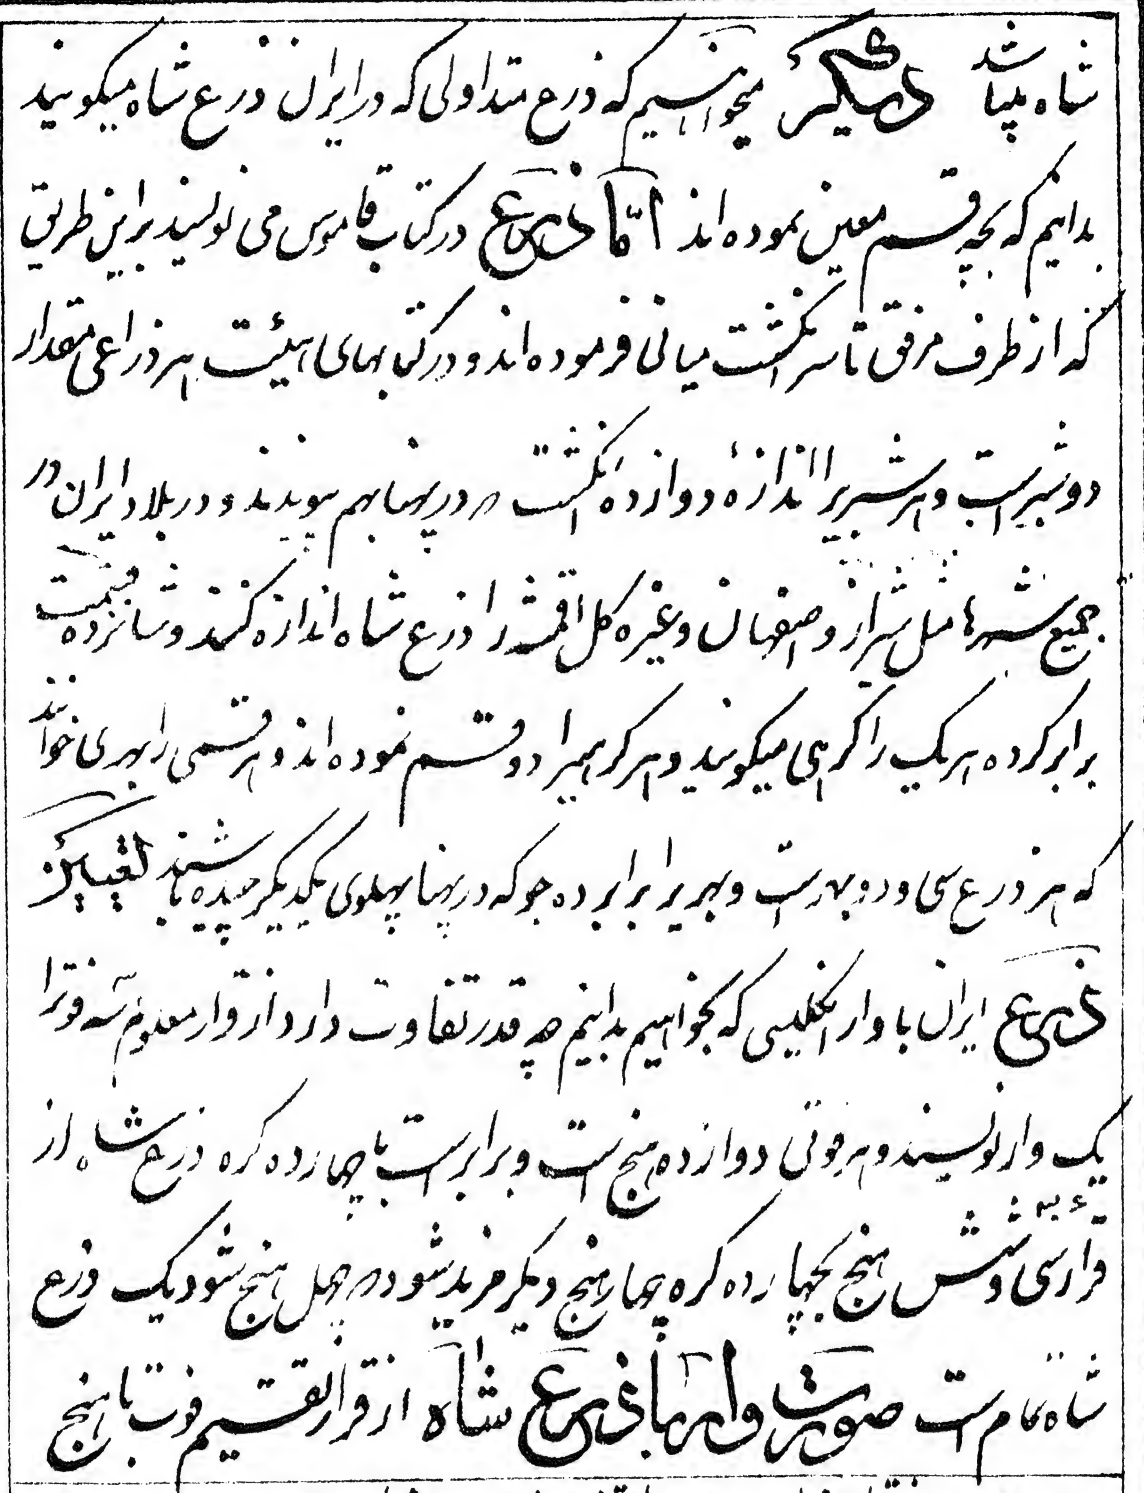 شاه پلپا شد دیگر میخواهیم که ذرع متداولی که در ایران ذرع شاه میکویند
بدانیم که بچه قسم معین نموده اند امّا ذرع در کتاب قاموس می نویسند براین طریق
که از طرف مرفق تا سر انگشت میانی فرموده اند و در کتابهای هیئت هر ذراعی مقدار
دو شبر است و هر شبریرا اندازهٔ دوازده انگشت که در پهنا بهم پیوندند و در بلاد ایران در
جمیع شهرها مثل شیراز و اصفهان و غیره کل اقمشه را ذرع شاه اندازه کنند و شانزده قسمت
برابر کرده هر یک را کرهی میکویند و هر کرهیرا دو قسم نموده اند و هر قسمی را بهری خوانند
که هر ذرع سی و دو بهر است و بهریرا برابر ده جو که در پهنا پهلوی یکدیکر چسپیده باشند تعیین
ذرع ایران با وار انکلیسی که بخواهیم بدانیم چه قدر تفاوت دارد از قرار معلوم سه فوترا
یک وار نویسند و هر فوتی دوازده هنج است و برابر است با چهارده کره ذرع شاه از
قرار سی و شش هنج بچهارده کره چهار هنج دیکر مزید شود که چهل هنج شود یک ذرع
شاه تمام است صورت وار با ذرع شاه از قرار تقسیم فوت با هنج